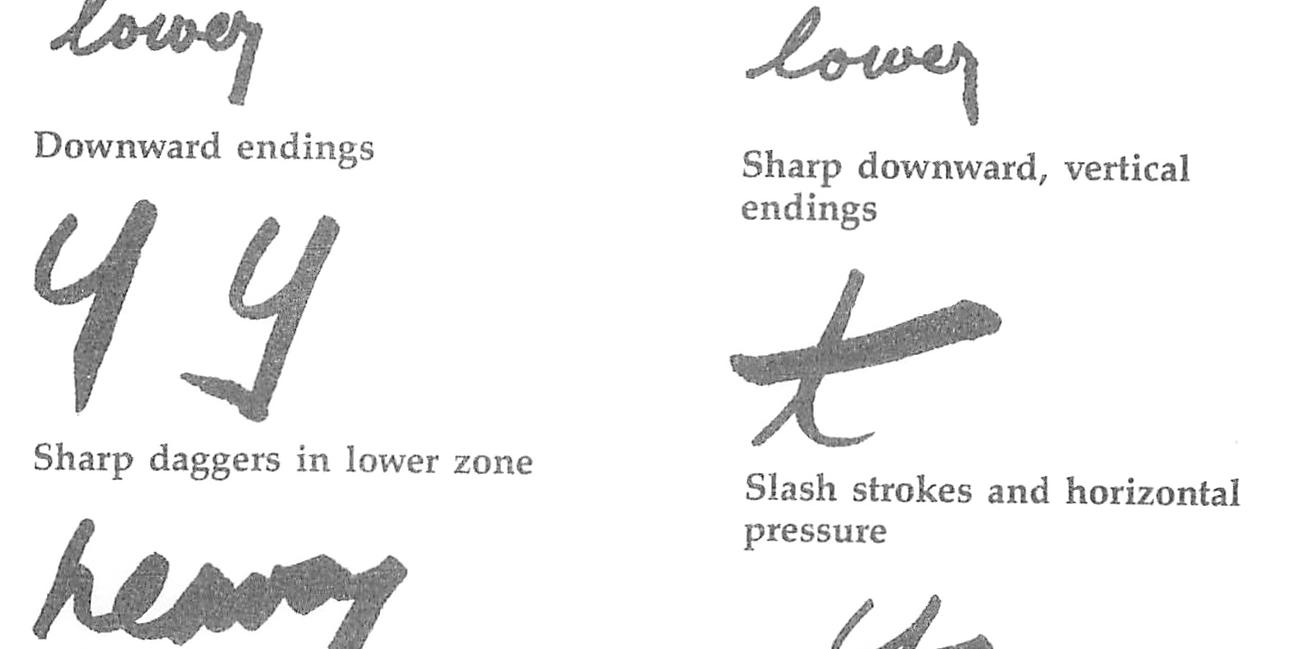 lower
Downward endings
y y
Sharp daggers in lower zone
lower
Sharp downward, vertical
endings
t
Slash strokes and horizontal
pressure